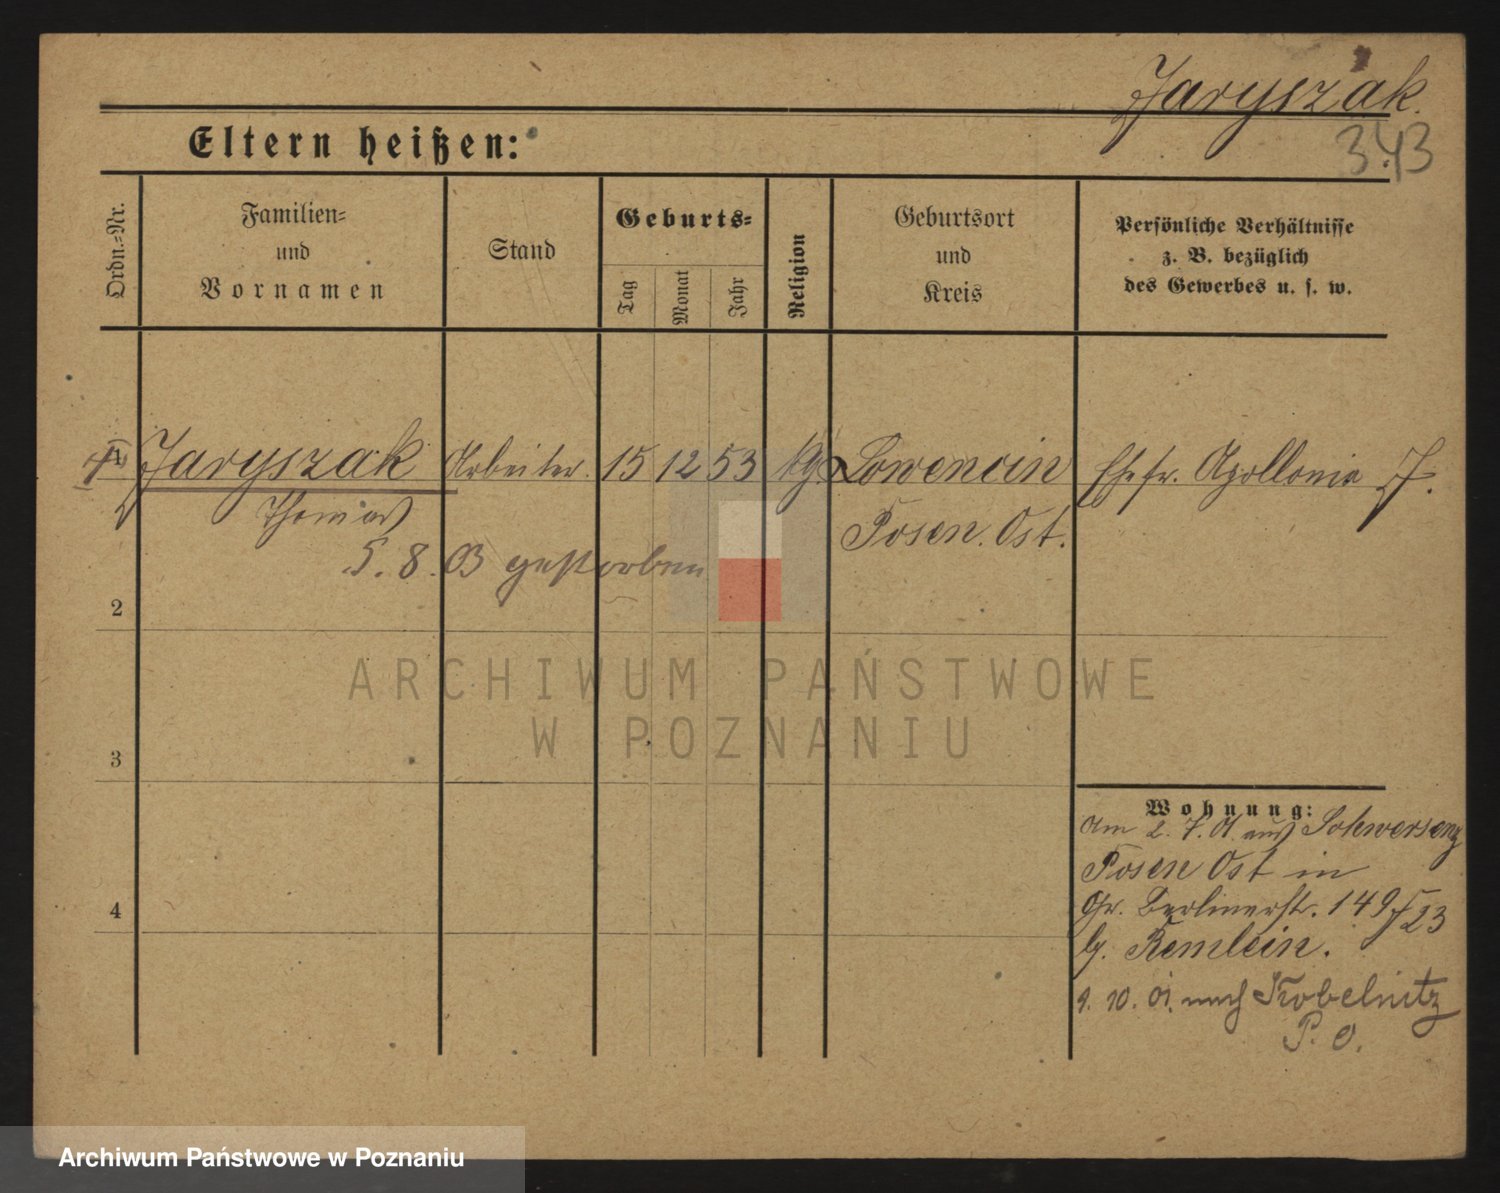 Jaryszak.
343
Eltern heißen:
Ordn.-Nr.
Familien-
und
Vornamen
Stand
Geburts-
Tag
Monat
Jahr
Religion
Geburtsort
und
Kreis
Persönliche Verhältnisse
z. B. bezüglich
des Gewerbes u. s. w.
1 Jaryszak Arbeiter. 15 12 53 kg. Lowencin Ehefr. Apollonia J.
Thomas Posen. Ost.
5. 8. 03 gestorben
2
ARCHIWUM PAŃSTWOWE
W POZNANIU
3
Wohnung:
Am 2. 7. 01. aus Schwersenz
Posen Ost in
Gr. Berlinerstr. 149
b. Remlein.
9. 10. 01. nach Kobelnitz
P. O.
4
Archiwum Państwowe w Poznaniu